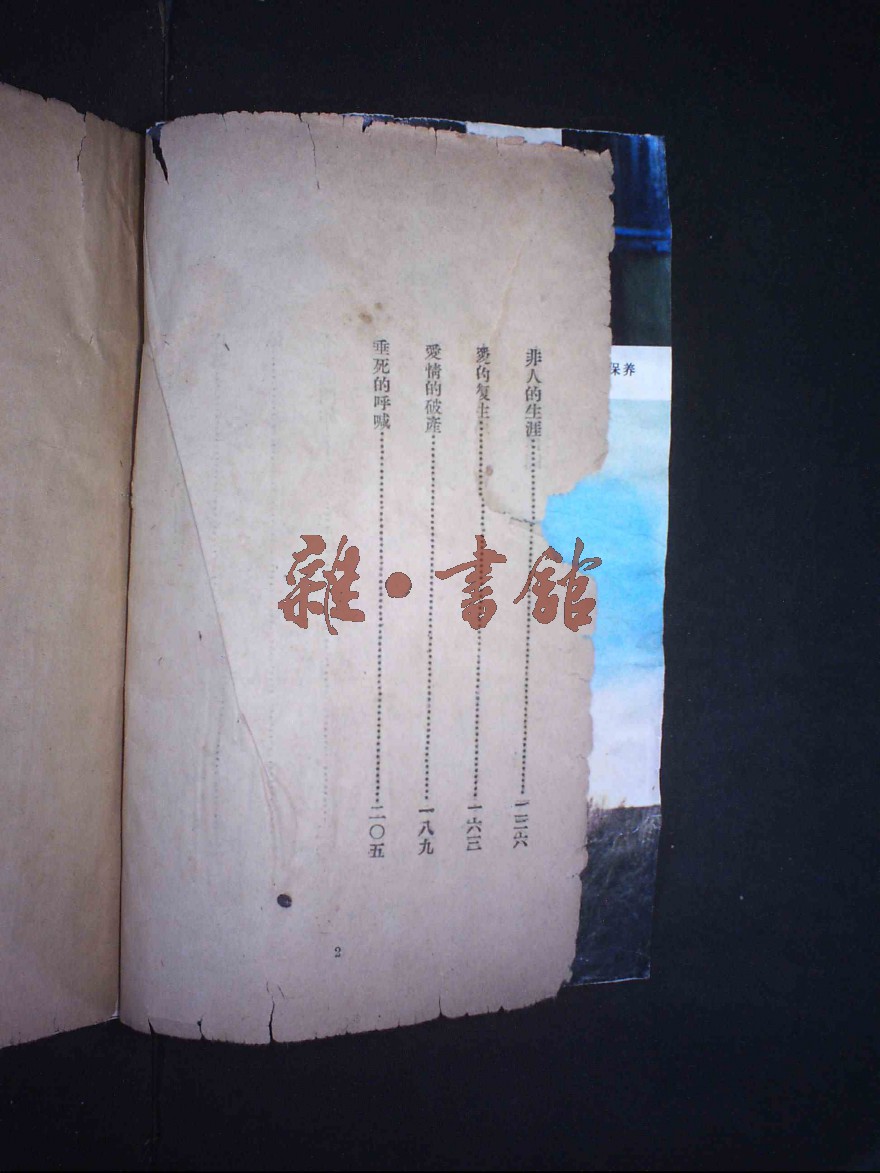 非人的生涯……一三六
愛的复生……一六三
愛情的破產……一八九
垂死的呼喊……二〇五
2
保养
雜·書館